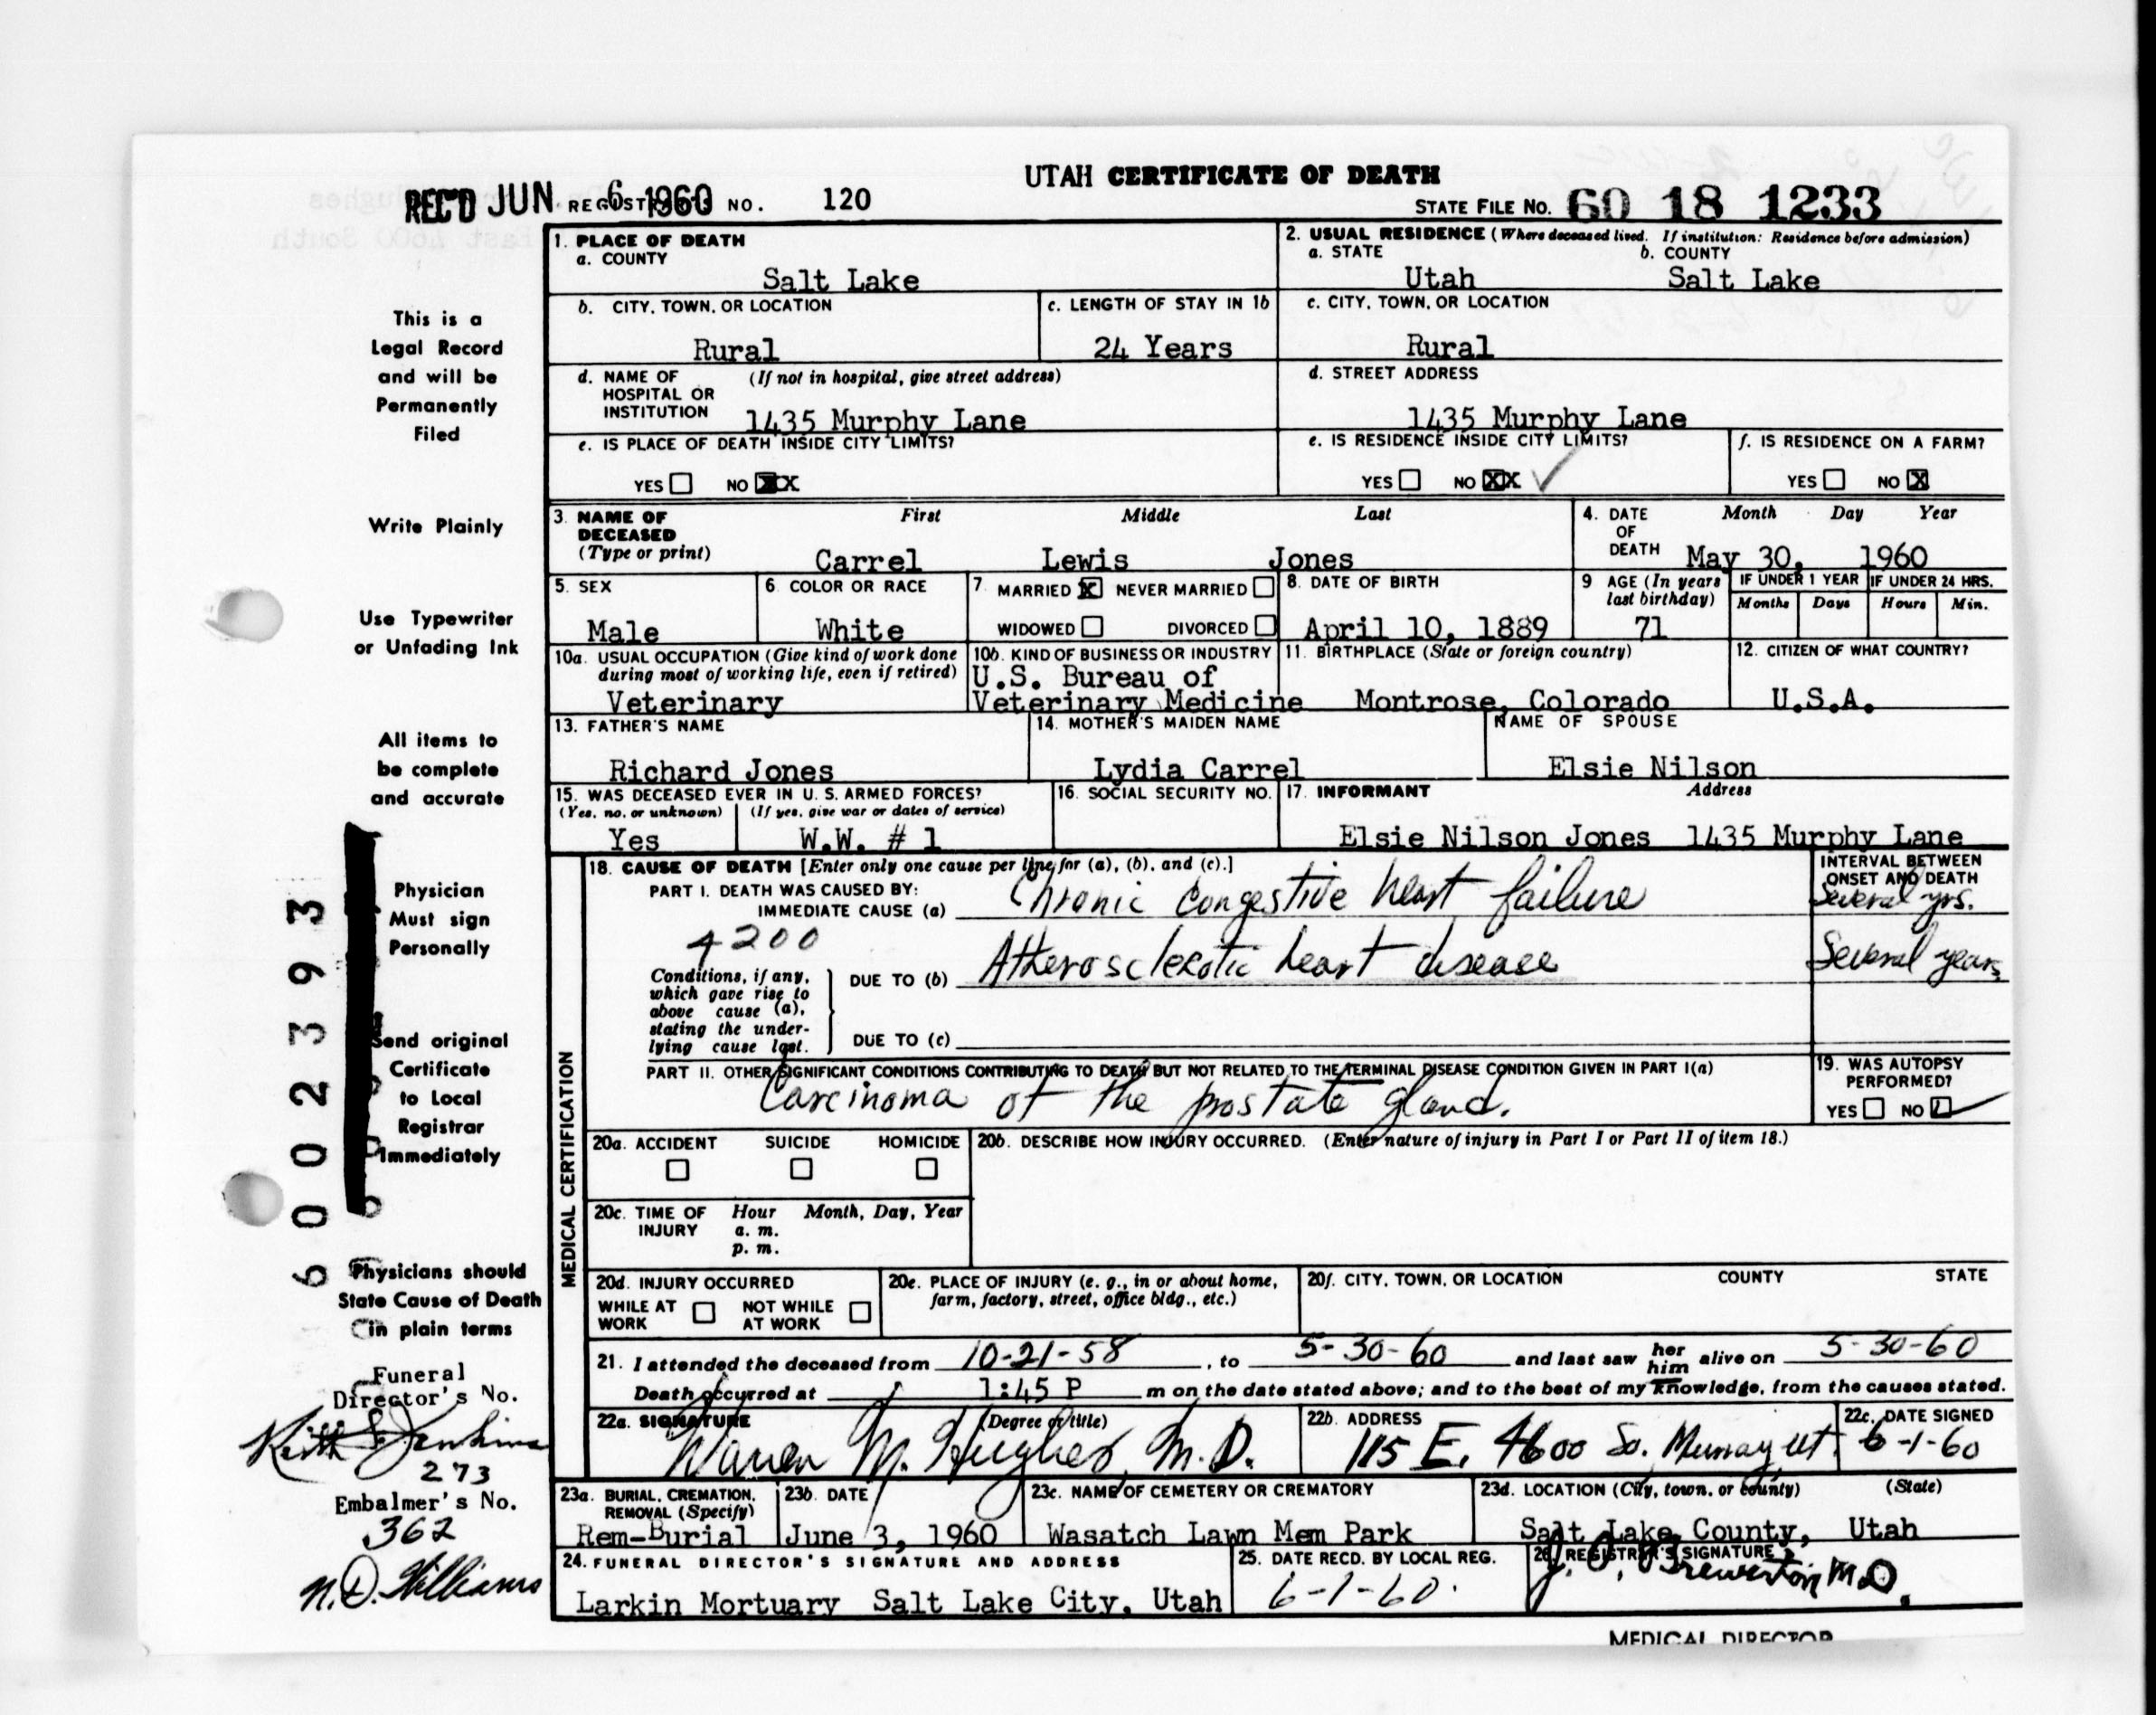 UTAH CERTIFICATE OF DEATH
REC'D JUN 6 1960 REGISTRAR'S NO. 120
STATE FILE NO. 60 18 1233
1. PLACE OF DEATH
a. COUNTY
Salt Lake
2. USUAL RESIDENCE (Where deceased lived. If institution: Residence before admission)
a. STATE b. COUNTY
Utah Salt Lake
b. CITY, TOWN, OR LOCATION
Rural
c. LENGTH OF STAY IN 1b
24 Years
c. CITY, TOWN, OR LOCATION
Rural
d. NAME OF (If not in hospital, give street address)
HOSPITAL OR
INSTITUTION 1435 Murphy Lane
d. STREET ADDRESS
1435 Murphy Lane
e. IS PLACE OF DEATH INSIDE CITY LIMITS?
YES NO XX
e. IS RESIDENCE INSIDE CITY LIMITS?
YES NO XX
f. IS RESIDENCE ON A FARM?
YES NO X
3. NAME OF DECEASED (Type or print)
First Middle Last
Carrel Lewis Jones
4. DATE OF DEATH
Month Day Year
May 30, 1960
5. SEX
Male
6. COLOR OR RACE
White
7. MARRIED X NEVER MARRIED
WIDOWED DIVORCED
8. DATE OF BIRTH
April 10, 1889
9 AGE (In years last birthday)
71
IF UNDER 1 YEAR IF UNDER 24 HRS.
Months Days Hours Min.
10a. USUAL OCCUPATION (Give kind of work done
during most of working life, even if retired)
Veterinary
10b. KIND OF BUSINESS OR INDUSTRY
U.S. Bureau of
Veterinary Medicine
11. BIRTHPLACE (State or foreign country)
Montrose, Colorado
12. CITIZEN OF WHAT COUNTRY?
U.S.A.
13. FATHER'S NAME
Richard Jones
14. MOTHER'S MAIDEN NAME
Lydia Carrel
NAME OF SPOUSE
Elsie Nilson
15. WAS DECEASED EVER IN U. S. ARMED FORCES?
(Yes, no, or unknown) (If yes, give war or dates of service)
Yes W.W. # 1
16. SOCIAL SECURITY NO.
17. INFORMANT Address
Elsie Nilson Jones 1435 Murphy Lane
MEDICAL CERTIFICATION
18. CAUSE OF DEATH [Enter only one cause per line for (a), (b), and (c).]
PART I. DEATH WAS CAUSED BY:
IMMEDIATE CAUSE (a) Chronic congestive heart failure
INTERVAL BETWEEN
ONSET AND DEATH
Several yrs.
4200
Conditions, if any,
which gave rise to
above cause (a),
stating the under-
lying cause last.
DUE TO (b) Atherosclerotic heart disease
Several years
DUE TO (c)
PART II. OTHER SIGNIFICANT CONDITIONS CONTRIBUTING TO DEATH BUT NOT RELATED TO THE TERMINAL DISEASE CONDITION GIVEN IN PART I(a)
Carcinoma of the prostate gland.
19. WAS AUTOPSY
PERFORMED?
YES NO
20a. ACCIDENT SUICIDE HOMICIDE
20b. DESCRIBE HOW INJURY OCCURRED. (Enter nature of injury in Part I or Part II of item 18.)
20c. TIME OF INJURY
Hour Month, Day, Year
a. m.
p. m.
20d. INJURY OCCURRED
WHILE AT WORK NOT WHILE AT WORK
20e. PLACE OF INJURY (e. g., in or about home,
farm, factory, street, office bldg., etc.)
20f. CITY, TOWN, OR LOCATION COUNTY STATE
21. I attended the deceased from 10-21-58, to 5-30-60 and last saw her him alive on 5-30-60
Death occurred at 1:45 P m on the date stated above; and to the best of my knowledge, from the causes stated.
22a. SIGNATURE (Degree or title)
Warren M. Hughes, M.D.
22b. ADDRESS
115 E. 4600 So. Murray Ut.
22c. DATE SIGNED
6-1-60
23a. BURIAL, CREMATION,
REMOVAL (Specify)
Rem-Burial
23b. DATE
June 3, 1960
23c. NAME OF CEMETERY OR CREMATORY
Wasatch Lawn Mem Park
23d. LOCATION (City, town, or county) (State)
Salt Lake County, Utah
24. FUNERAL DIRECTOR'S SIGNATURE AND ADDRESS
Larkin Mortuary Salt Lake City, Utah
25. DATE RECD. BY LOCAL REG.
6-1-60.
26. REGISTRAR'S SIGNATURE
Brewerton M.D.
MEDICAL DIRECTOR
This is a
Legal Record
and will be
Permanently
Filed
Write Plainly
Use Typewriter
or Unfading Ink
All items to
be complete
and accurate
Physician
Must sign
Personally
Send original
Certificate
to Local
Registrar
Immediately
Physicians should
State Cause of Death
in plain terms
Funeral
Director's No.
Keith S. Jenkins
273
Embalmer's No.
362
N.D. Williams
6002393